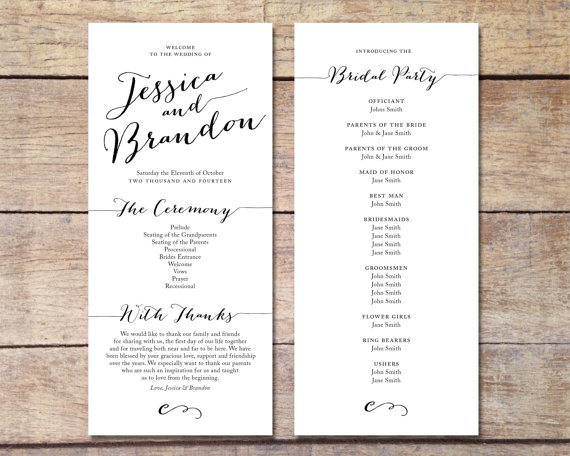 WELCOME
TO THE WEDDING OF
Jessica
and
Brandon
Saturday the Eleventh of October
TWO THOUSAND AND FOURTEEN
The Ceremony
Prelude
Seating of the Grandparents
Seating of the Parents
Processional
Brides Entrance
Welcome
Vows
Prayer
Recessional
With Thanks
We would like to thank our family and friends
for sharing with us, the first day of our life together
and for traveling both near and far to be here. We have
been blessed by your gracious love, support and friendship
over the years. We especially want to thank our parents
who are such an inspiration for us and taught
us to love from the beginning.
Love, Jessica & Brandon
INTRODUCING THE
Bridal Party
OFFICIANT
Johns Smith
PARENTS OF THE BRIDE
John & Jane Smith
PARENTS OF THE GROOM
John & Jane Smith
MAID OF HONOR
Jane Smith
BEST MAN
John Smith
BRIDESMAIDS
Jane Smith
Jane Smith
Jane Smith
Jane Smith
GROOMSMEN
John Smith
John Smith
John Smith
FLOWER GIRLS
Jane Smith
RING BEARERS
John Smith
USHERS
John Smith
Jane Smith